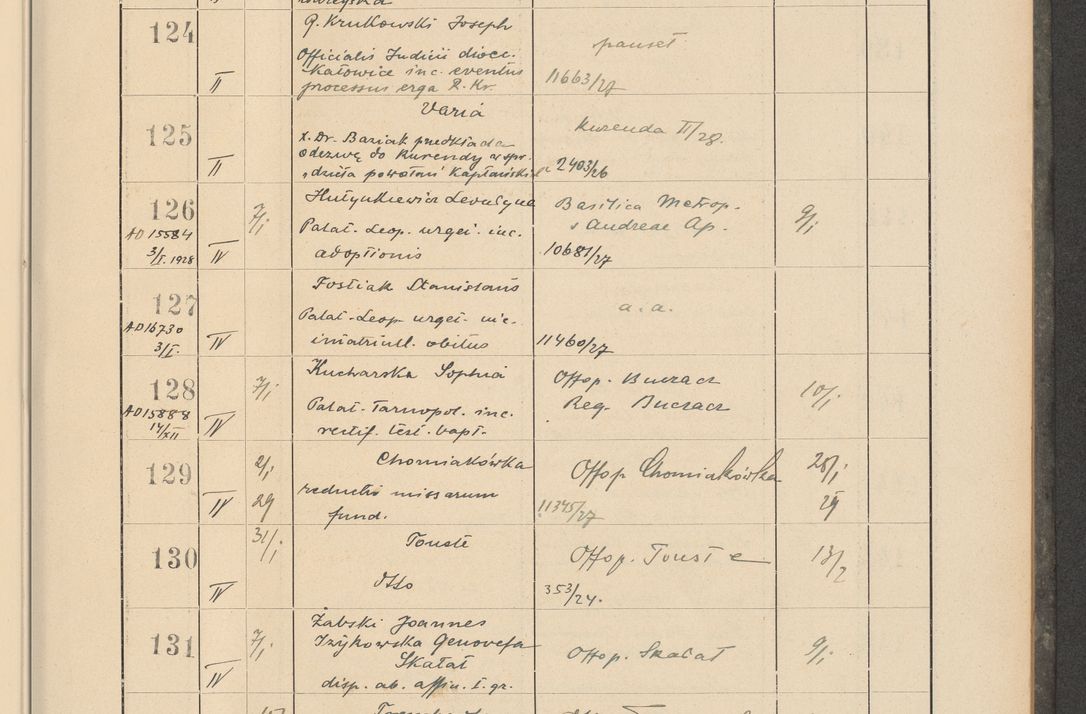 124
II
Q. Krukowski Joseph
Officialis Iudicii dioec.
Katowice inc. eventus
processus erga R. Kr.
pauset
11663/27
125
II
Varia
X. Dr. Baziak przedkłada
odezwę do Kurendy w spr.
"dzieła powołań Kapłańskich"
Kurenda II/28.
2403/26
126
AD 15584
3/I. 1928
IV
7/I
Palat. Leop. urget. inc.
adoptionis
Basilica Metrop.
s Andreae Ap.
10681/27
9/I
127
AD 16730
3/I.
IV
Fostiak Stanislaus
Palat. Leop. urget. inc.
imatricul. obitus
a.a.
11460/27
128
AD 15888
14/XII
IV
7/I
Kucharska Sophia
Palat. Tarnopol. inc.
rectif. test. bapt.
Offop. Buczacz
Reg. Buczacz
10/I
129
IV
2/I
29
Chomiakówka
reductio missarum
fund.
Offop Chomiakówka
11345/27
28/I
29
130
IV
31/I
Touste
Offop. Touste
353/24.
13/2
131
IV
7/I
Żabski Joannes
Iżykowska Genovefa
Skałat
disp. ab. affin. I. gr.
Offop. Skałat
9/I